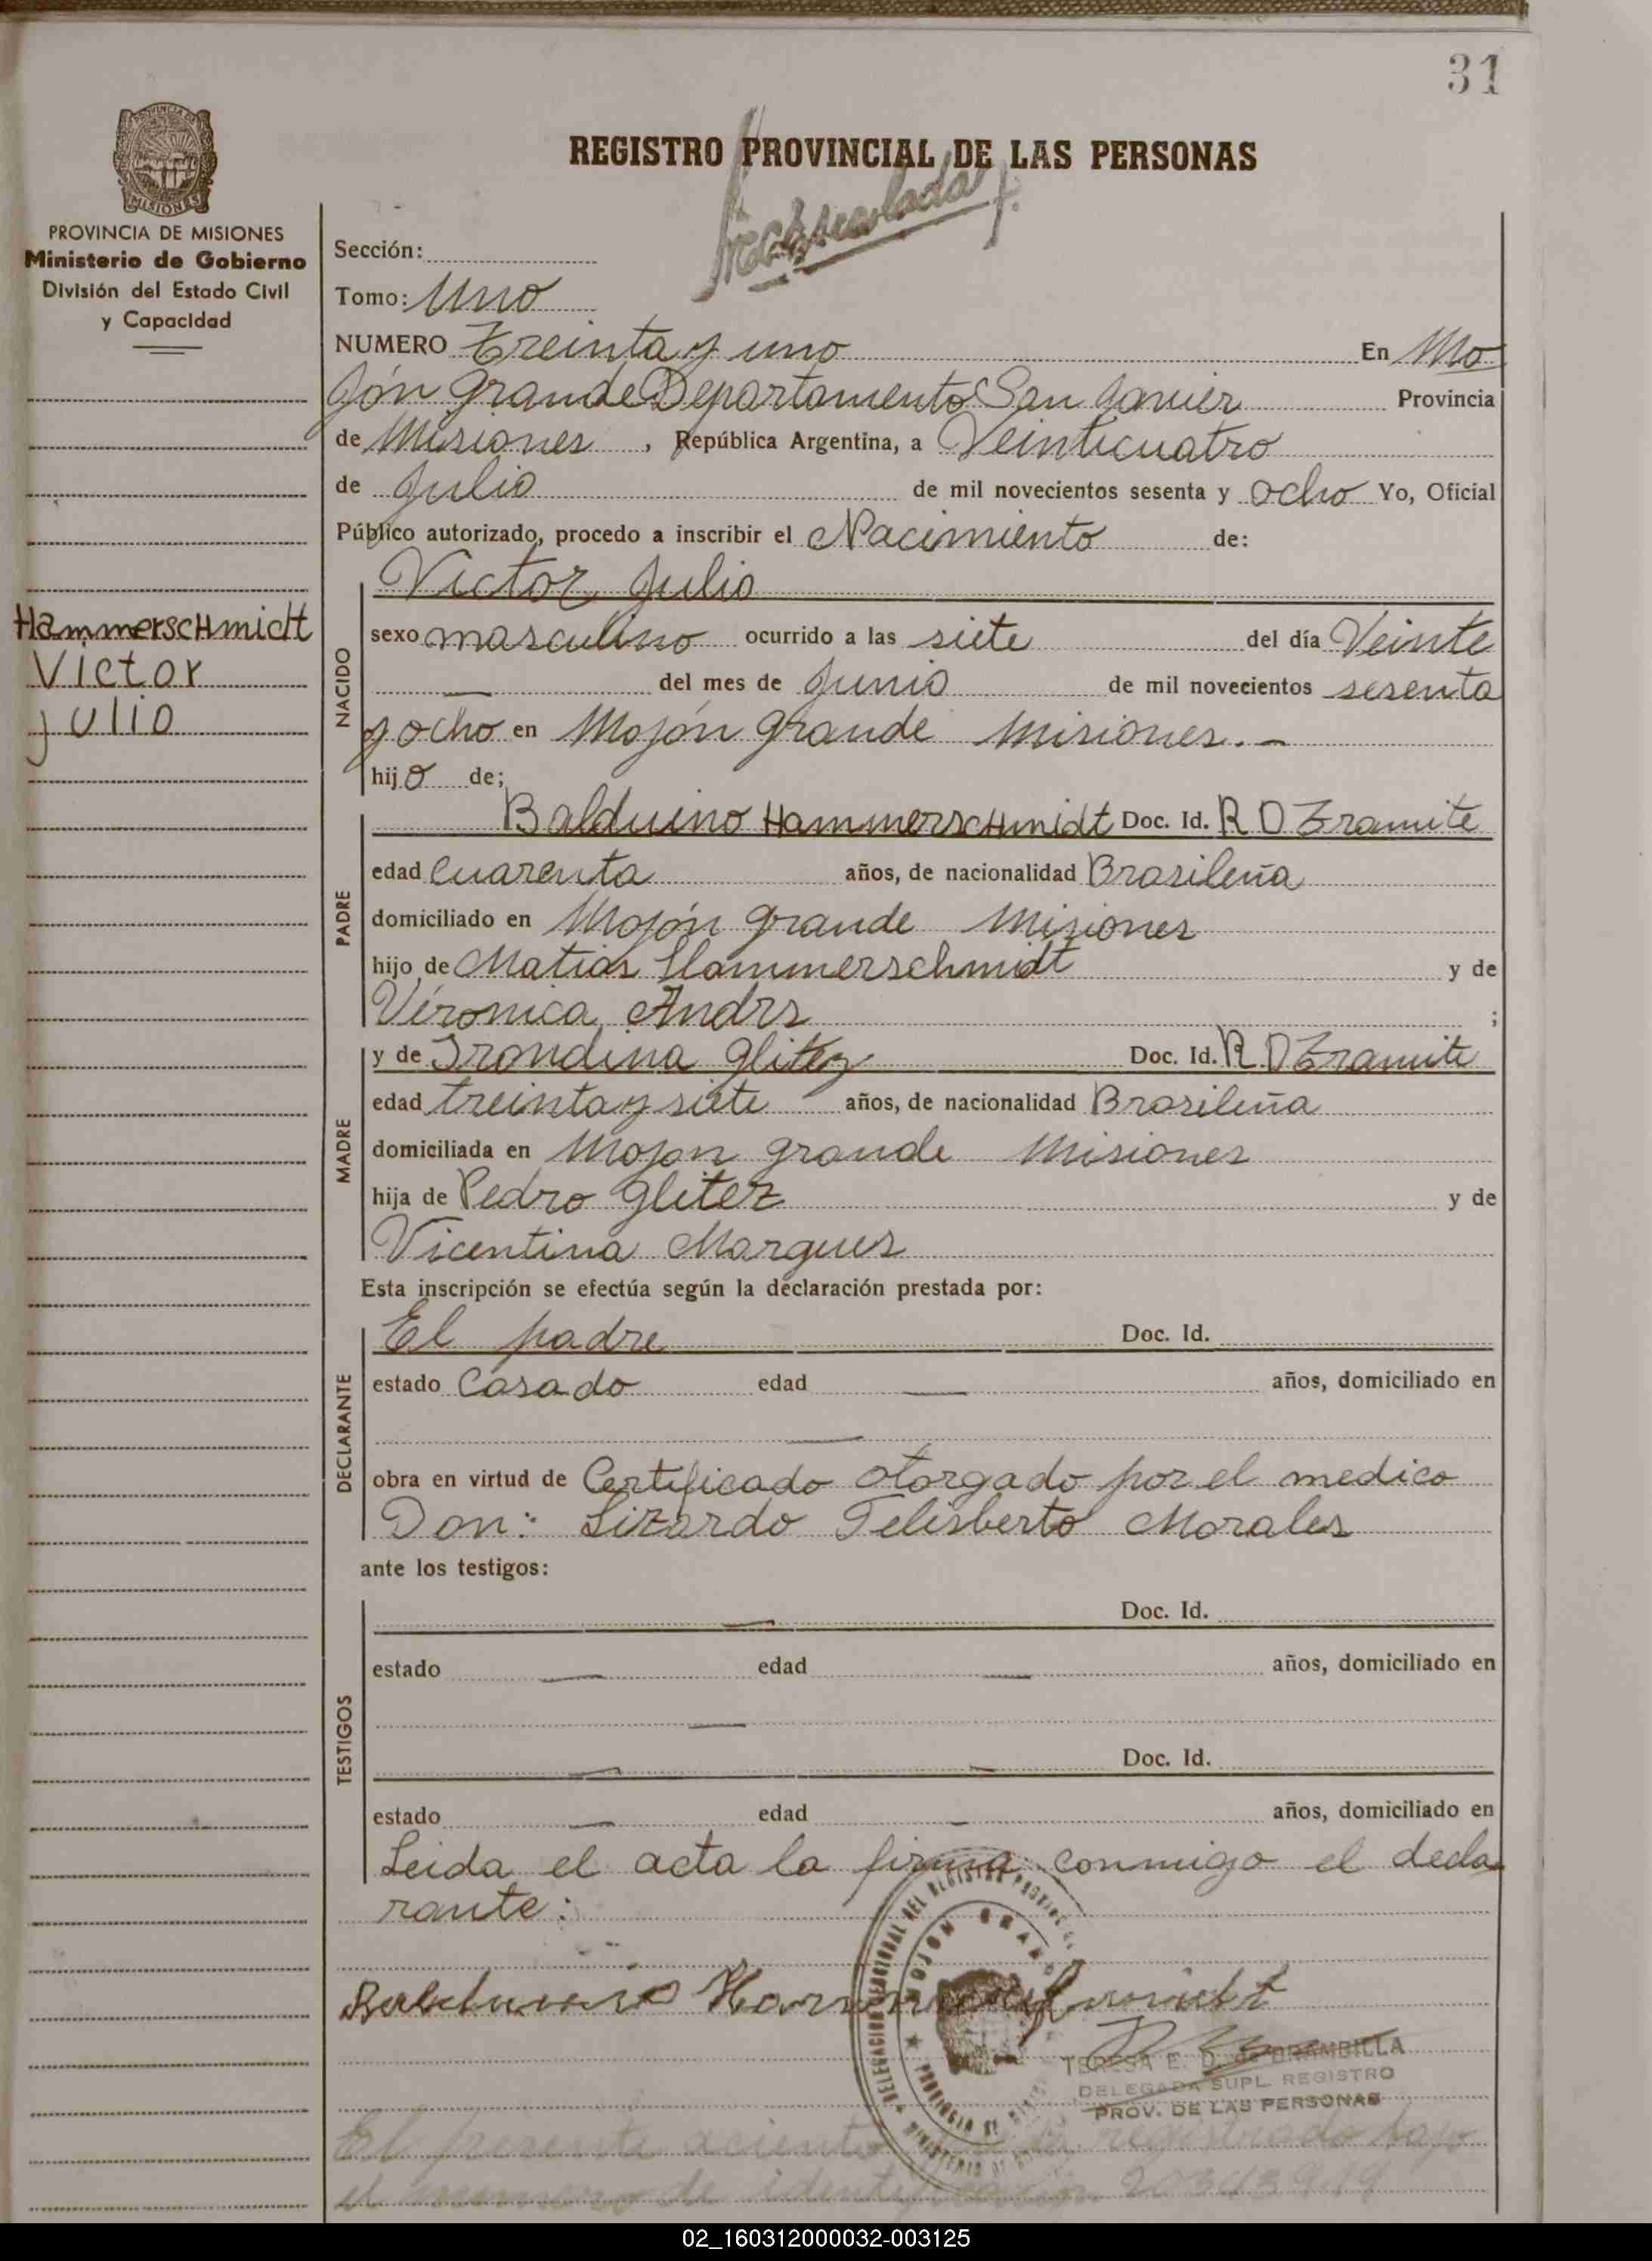 31
REGISTRO PROVINCIAL DE LAS PERSONAS
PROVINCIA DE MISIONES
Ministerio de Gobierno
División del Estado Civil
y Capacidad
Sección:
Tomo: Uno
NUMERO Treinta y uno En Mo
jón grande Departamento San Javier Provincia
de Misiones, República Argentina, a Veinticuatro
de Julio de mil novecientos sesenta y ocho Yo, Oficial
Público autorizado, procedo a inscribir el Nacimiento de:
Hammerschmidt
Victor
Julio
NACIDO
Victor Julio
sexo masculino ocurrido a las siete del día Veinte
— del mes de Junio de mil novecientos sesenta
y ocho en Mojón grande Misiones.-
hijo de;
PADRE
Balduino Hammerschmidt Doc. Id. R D Tramite
edad cuarenta años, de nacionalidad Brasileña
domiciliado en Mojón grande Misiones
hijo de Matias Hammerschmidt y de
Véronica Andrs ;
MADRE
y de Irondina Glitez Doc. Id. R. D Tramite
edad treinta y siete años, de nacionalidad Brasileña
domiciliada en Mojon grande Misiones
hija de Pedro Glitez y de
Vicentina Marques
Esta inscripción se efectúa según la declaración prestada por:
DECLARANTE
El padre Doc. Id.
estado Casado edad — años, domiciliado en
—
obra en virtud de Certificado otorgado por el medico
Don: Lizardo Felisberto Morales
ante los testigos:
TESTIGOS
— Doc. Id.
estado — edad — años, domiciliado en
—
— Doc. Id.
estado — edad — años, domiciliado en
Leida el acta la firma conmigo el decla
rante:
Balduino Hammerschmidt
MOJON GRANDE
TERESA E. D. de BRAMBILLA
DELEGADA SUPL. REGISTRO
PROV. DE LAS PERSONAS
El presente asiento registrado bajo
el numero de identificación
02_160312000032-003125